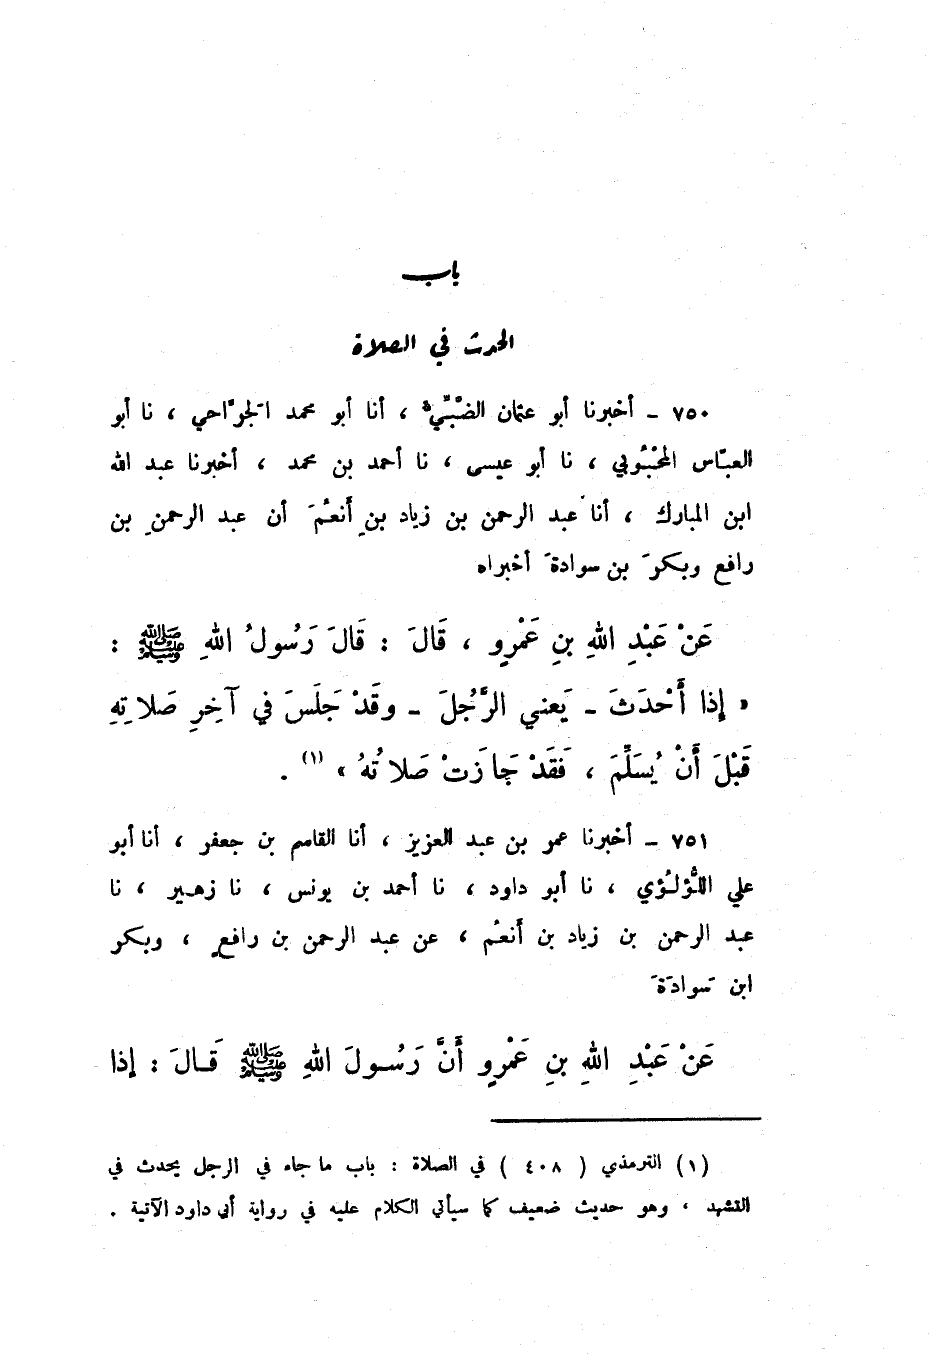 باب
الحدث في الصلاة
٧٥٠ ـ أخبرنا أبو عثمان الضَّبِّيُّ ، أنا أبو محمد الجرَّاحي ، نا أبو
العبّاس المحْبُوبي ، نا أبو عيسى ، نا أحمد بن محمد ، أخبرنا عبد الله
ابن المبارك ، أنا عبد الرحمن بن زياد بنِ أَنعُمَ أن عبد الرحمنِ بن
رافع وبكرَ بن سوادةَ أخبراه
عَنْ عَبْدِ اللهِ بنِ عَمْرٍو ، قَالَ : قَالَ رَسُولُ اللهِ ﷺ :
« إِذا أَحْدَثَ ـ يَعني الرَّجُلَ ـ وقَدْ جَلَسَ في آخِرِ صَلاتِهِ
قَبْلَ أَنْ يُسَلِّمَ ، فَقَدْ جَازَتْ صَلاتُهُ » (١) .
٧٥١ ـ أخبرنا عمر بن عبد العزيز ، أنا القاسم بن جعفر ، أنا أبو
علي اللُّؤلُؤي ، نا أبو داود ، نا أحمد بن يونس ، نا زهير ، نا
عبد الرحمن بن زياد بن أَنعُم ، عن عبد الرحمن بن رافعٍ ، وبكر
ابن سَوادَةَ
عَنْ عَبْدِ اللهِ بنِ عَمْرٍو أَنَّ رَسُولَ اللهِ ﷺ قَالَ : إِذا
(١) الترمذي ( ٤٠٨ ) في الصلاة : باب ما جاء في الرجل يحدث في
التشهد ، وهو حديث ضعيف كما سيأتي الكلام عليه في رواية أبي داود الآتية .